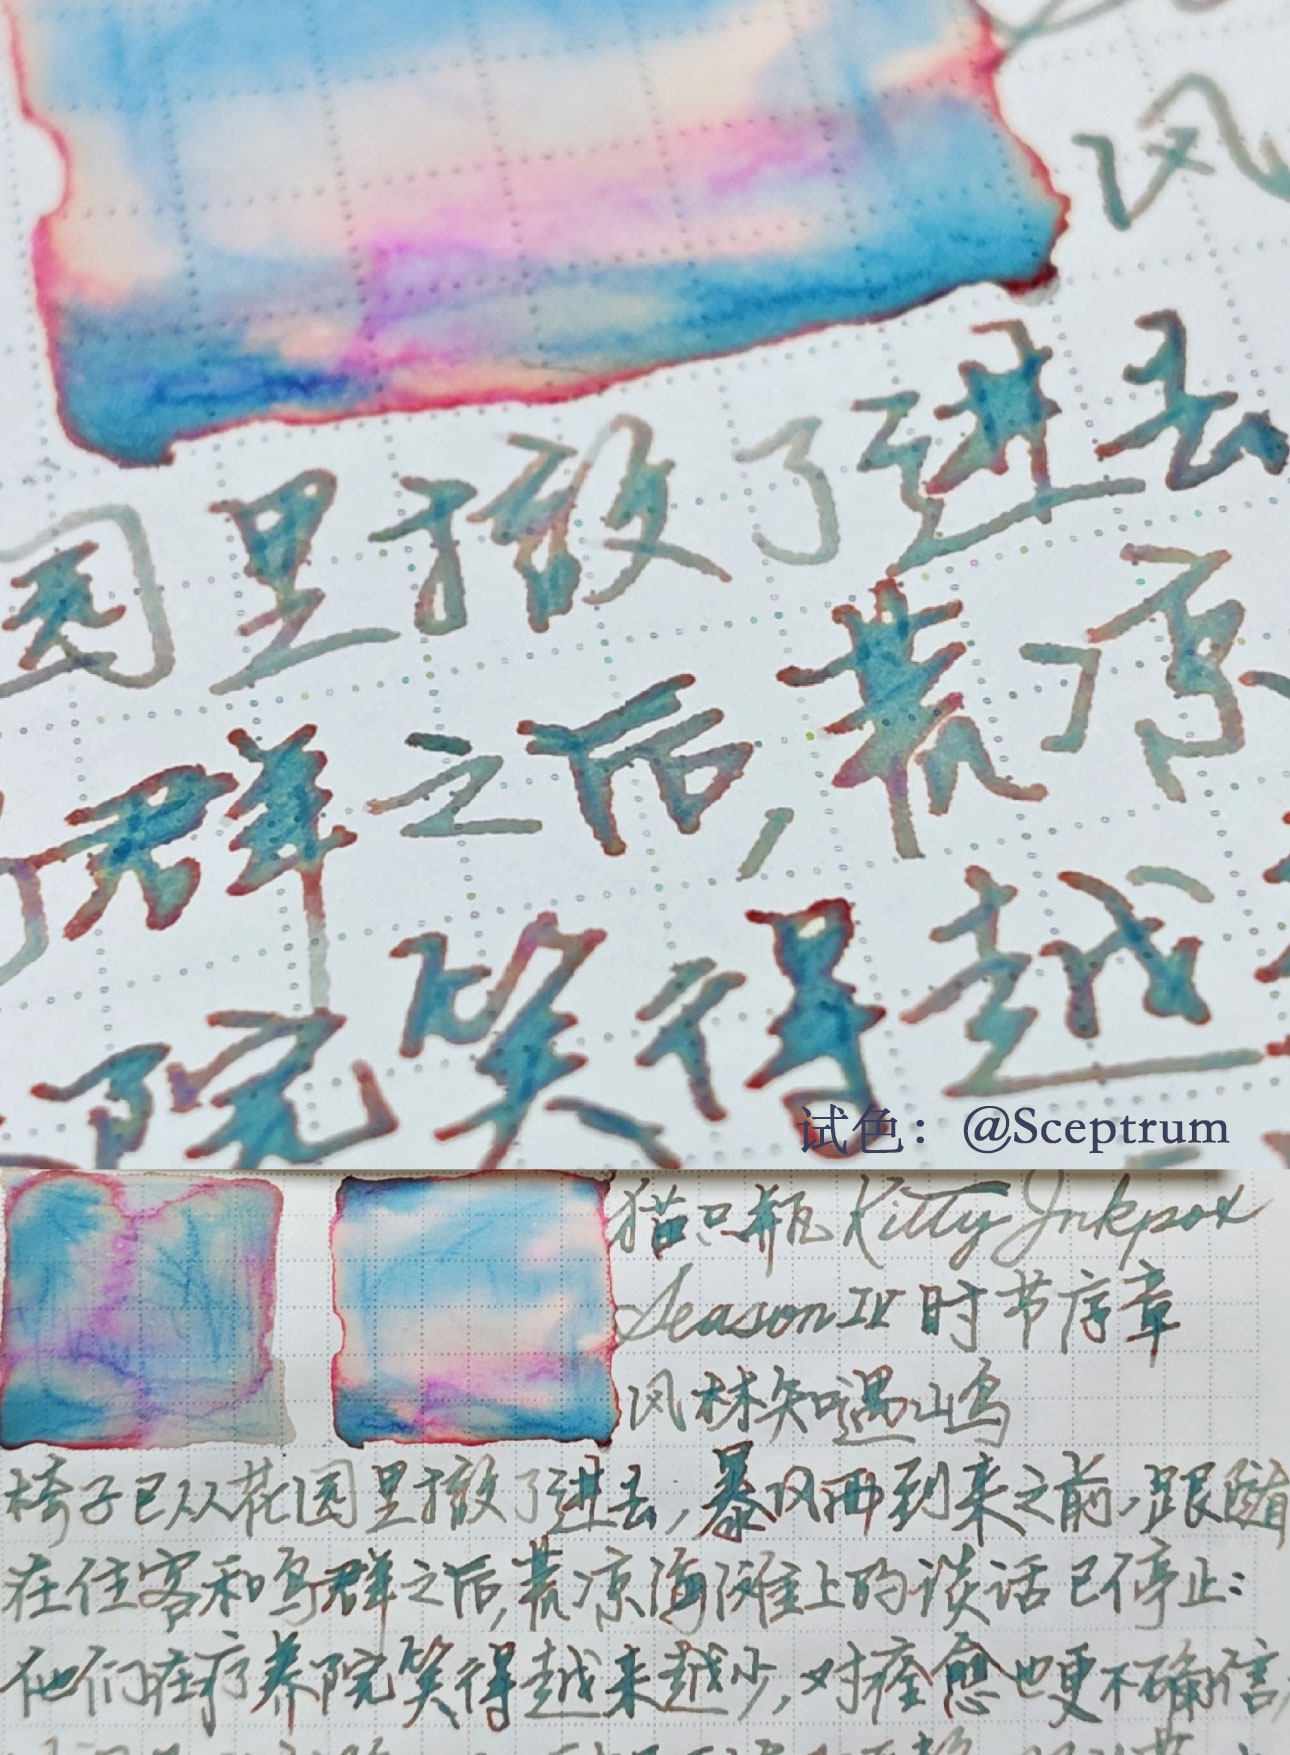 风
园里撤了进去
群之后,荒凉
院笑得越
试色：@Sceptrum
猫只瓶 Kitty Inkpot
Season IV 时节序章
风林知遇山鸟
椅子已从花园里撤了进去,暴风雨到来之前。跟随
在住客和鸟群之后,荒凉海滩上的谈话已停止:
他们在疗养院笑得越来越少,对痊愈也更不确信